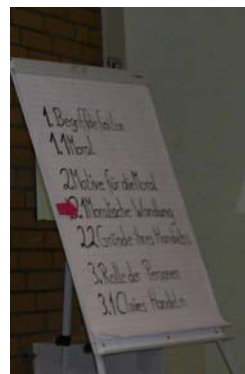 1. Begriffdefinition
1.1 Moral
2. Motive für die Moral
2.1 Moralische Wandlung
2.2 Gründe ihres Handelns
3. Rolle der Personen
3.1 Claires Handeln